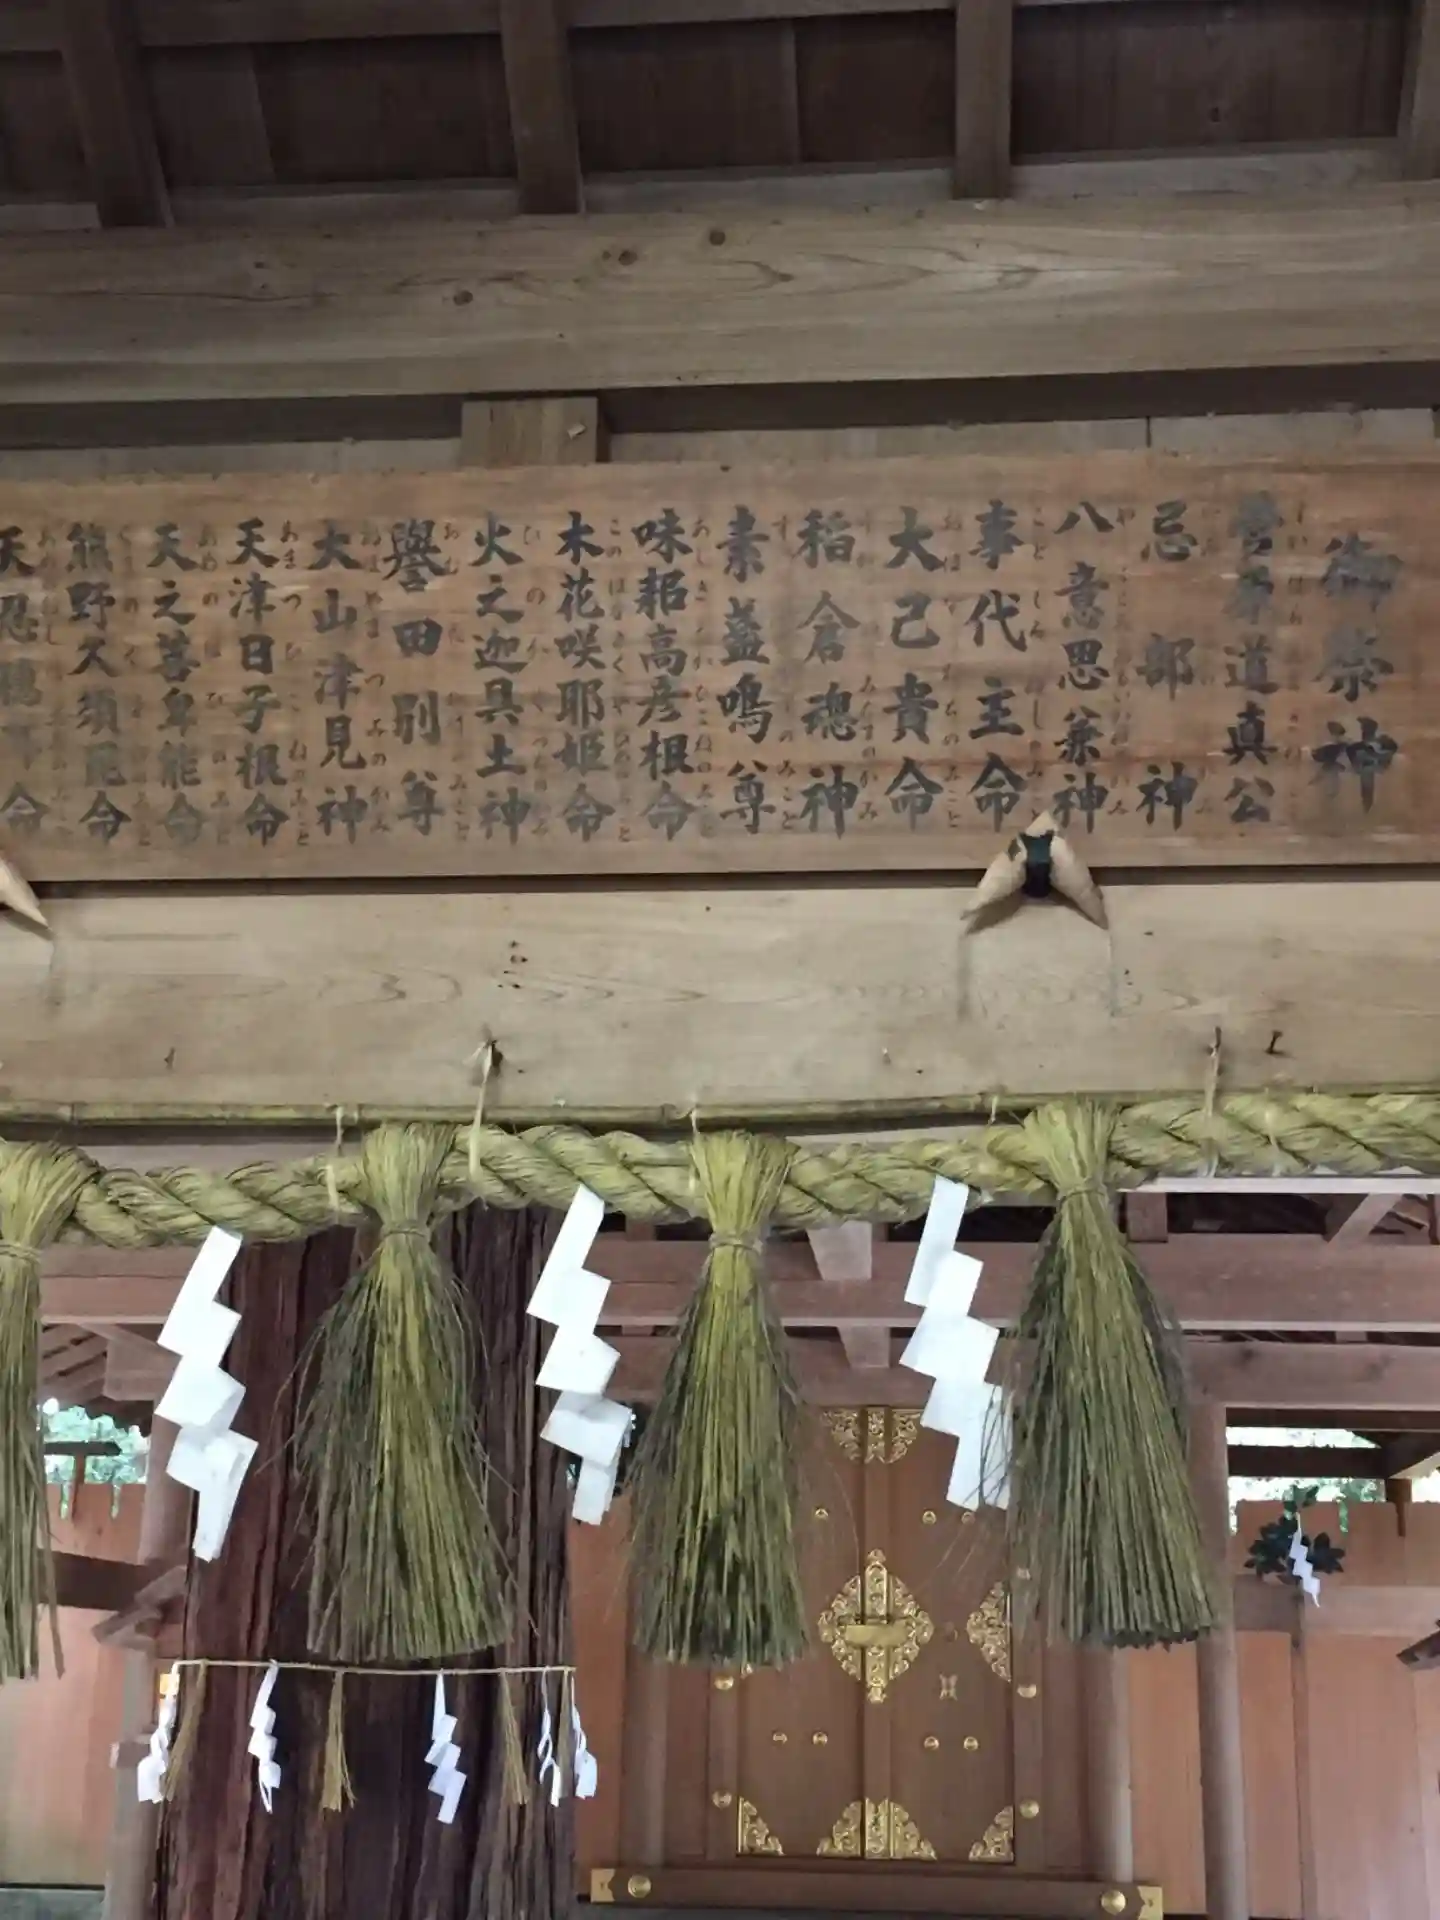 御祭神
菅原道真公
忌部神
八意思兼神
事代主命
大己貴命
稲倉魂神
素盞鳴尊
味耜高彦根命
木花咲耶姫命
火之迦具土神
譽田別尊
大山津見神
天津日子根命
天之菩卑能命
熊野久須毘命
天忍穂耳命